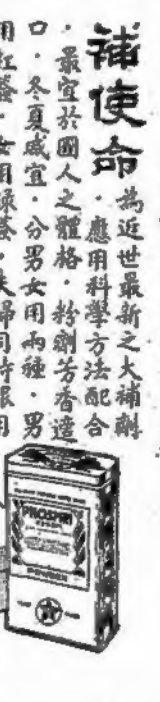 補使命
為近世最新之大補劑
·應用科學方法配合
·最宜於國人之體格·粉劑芳香適
口·冬夏咸宜·分男女用兩種·男
用紅簽·女用綠簽·夫婦同時服用
PHOSPHRI
POWDER